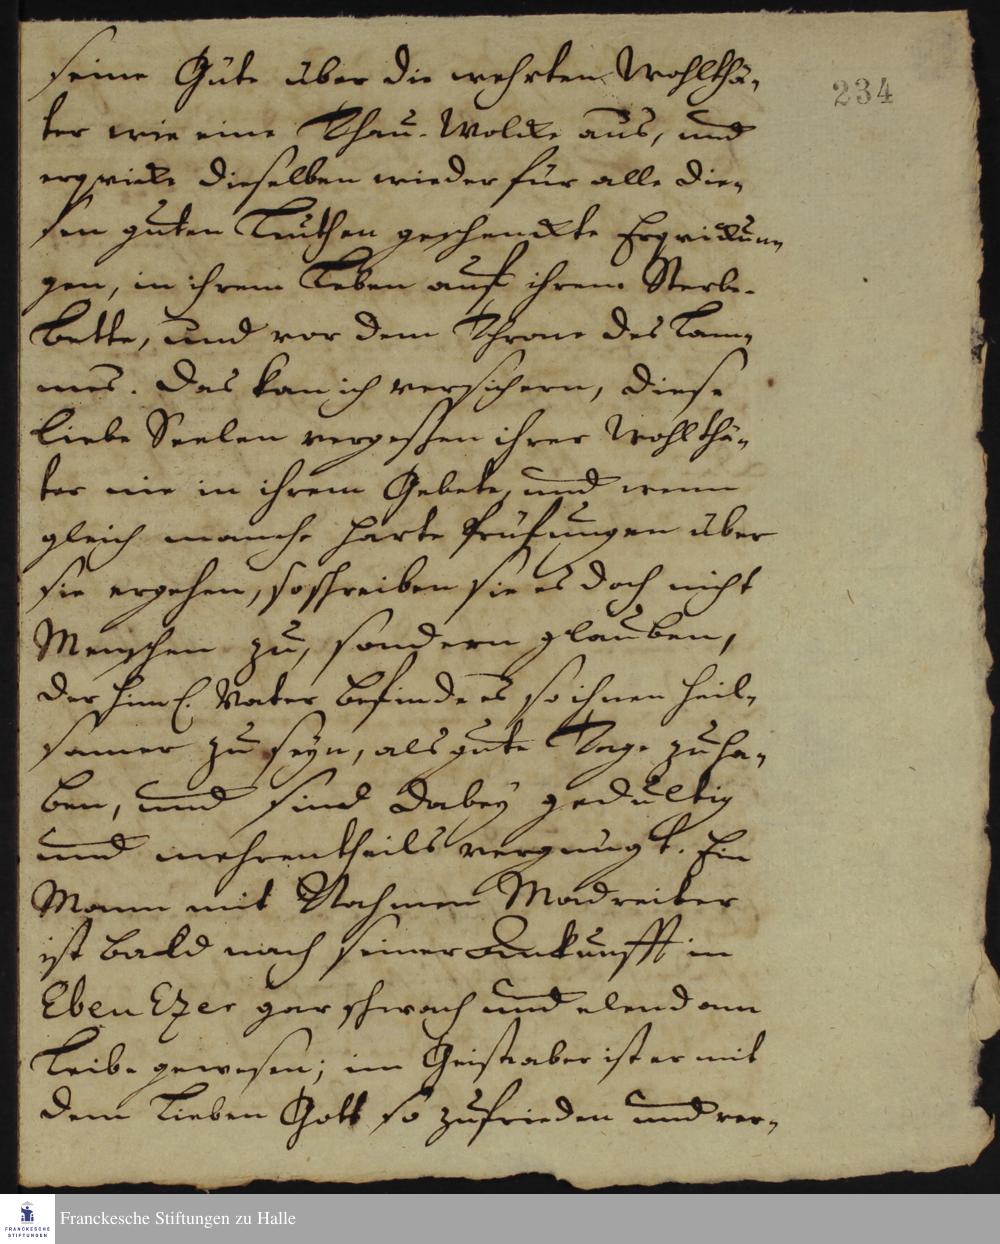 seine Güte über die wehrten Wohlthä-
ter wie eine Thau-Wolcke aus, und
erqvicke dieselben wieder für alle die-
sen guten Leuthen geschenckte Erqvickun-
gen, in ihrem Leben auf ihrem Sterbe-
bette, und vor dem Throne des Lam-
mes. Das kan ich versichern, diese
liebe Seelen vergeßen ihrer Wohlthä-
ter nie in ihrem Gebete, und wenn
gleich manche harte Prüfungen über
sie ergehen, so schreiben sie es doch nicht
Menschen zu, sondern glauben,
der himl. Vater befinde es so ihnen heil-
samer zu seyn, als gute Tage zu ha-
ben, und sind dabey gedultig
und mehrentheils vergnügt. Ein
Mann mit Nahmen Madreiter
ist bald nach seiner Ankunfft in
Eben Ezer gar schwach und elend am
Leibe gewesen; im Geiste aber ist er mit
dem lieben Gott so zufrieden und ver-
234
FRANCKESCHE
STIFTUNGEN
Franckesche Stiftungen zu Halle